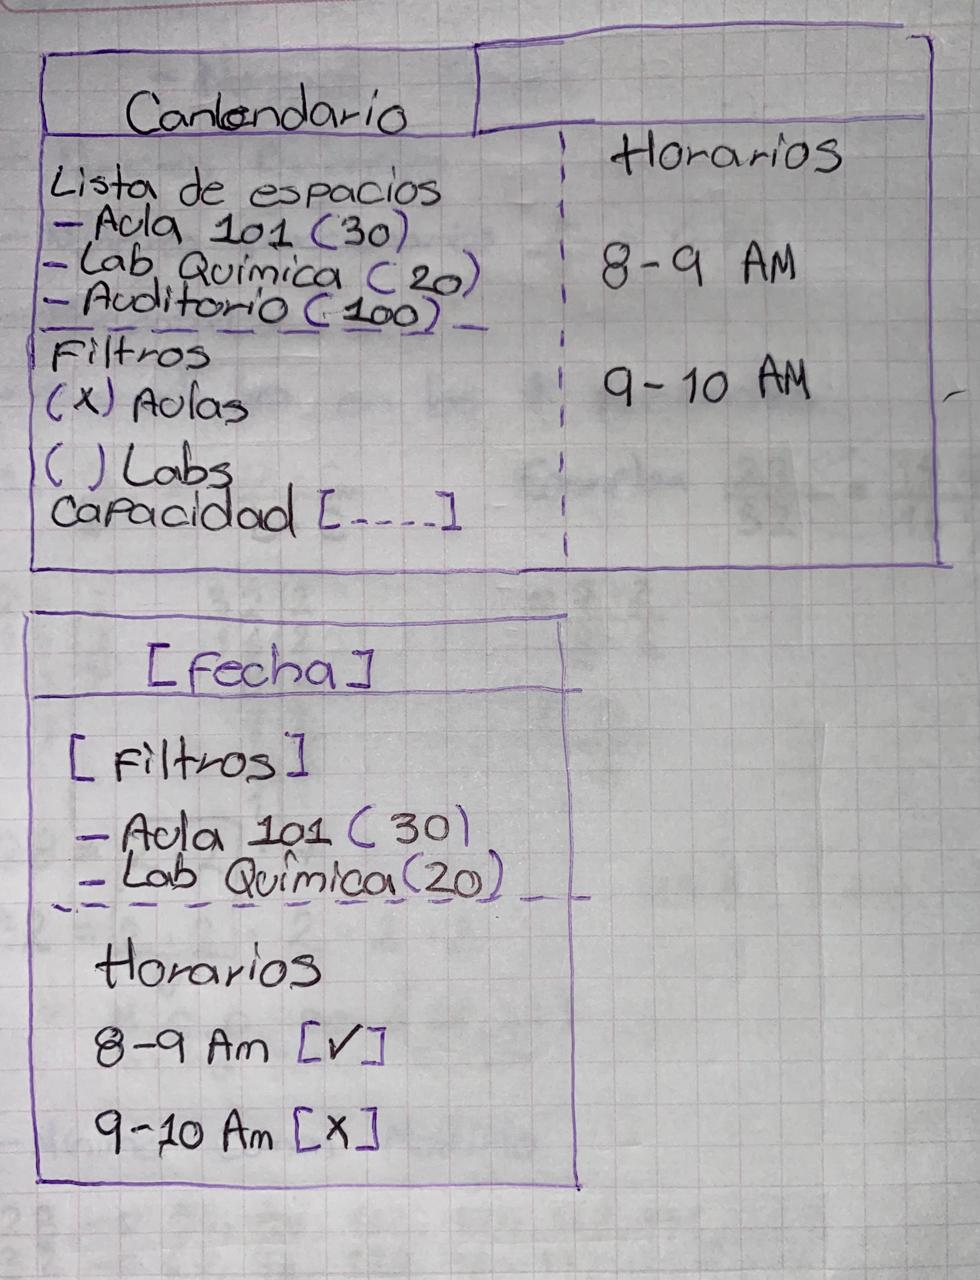 Canlendario
Lista de espacios
- Aula 101 (30)
- Lab Química (20)
- Auditorio (100)
Filtros
(x) Aulas
( ) Labs
Capacidad [----]
Horarios
8-9 AM
9-10 AM
[Fecha]
[Filtros]
- Aula 101 (30)
- Lab Química (20)
Horarios
8-9 Am [✓]
9-10 Am [x]